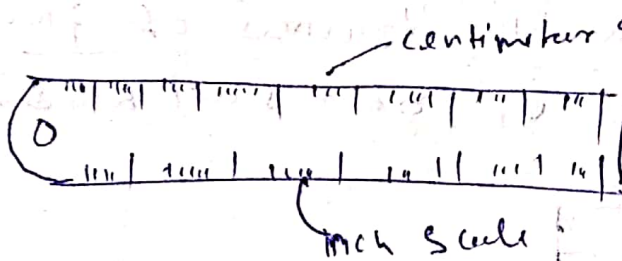 centimeter
0
inch scale